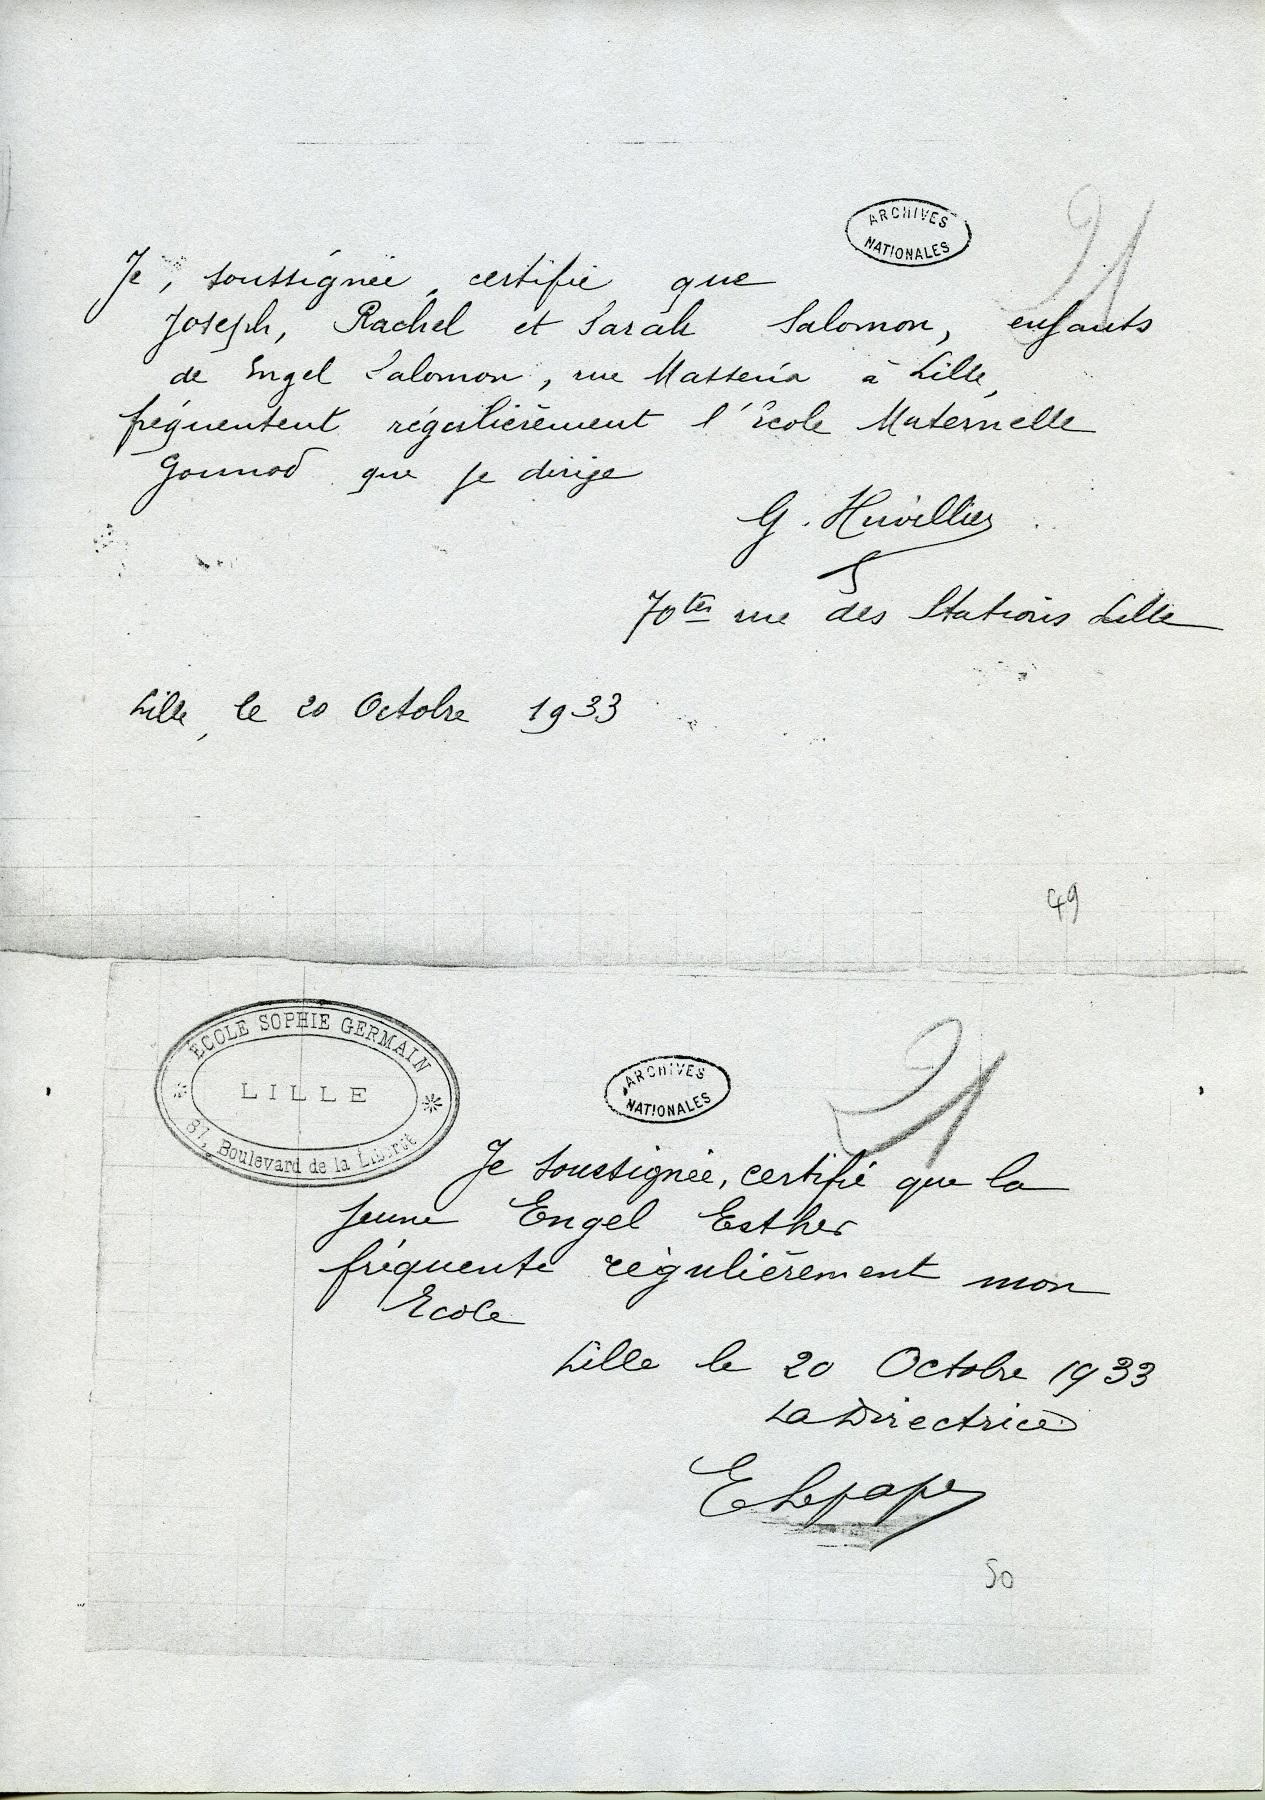 ARCHIVES
NATIONALES
21
Je, soussignée, certifie que
Joseph, Rachel et Sarah Salomon, enfants
de Engel Salomon, rue Masséna à Lille,
fréquentent régulièrement l'Ecole Maternelle
Gounod que je dirige
G.
70 ter rue des Stations Lille
Lille, le 20 Octobre 1933
49
ECOLE SOPHIE GERMAIN
LILLE
81, Boulevard de la Liberté
ARCHIVES
NATIONALES
21
Je soussignée, certifie que la
jeune Engel Esther
fréquente régulièrement mon
Ecole
Lille le 20 Octobre 1933
La Directrice
E Lepape
50